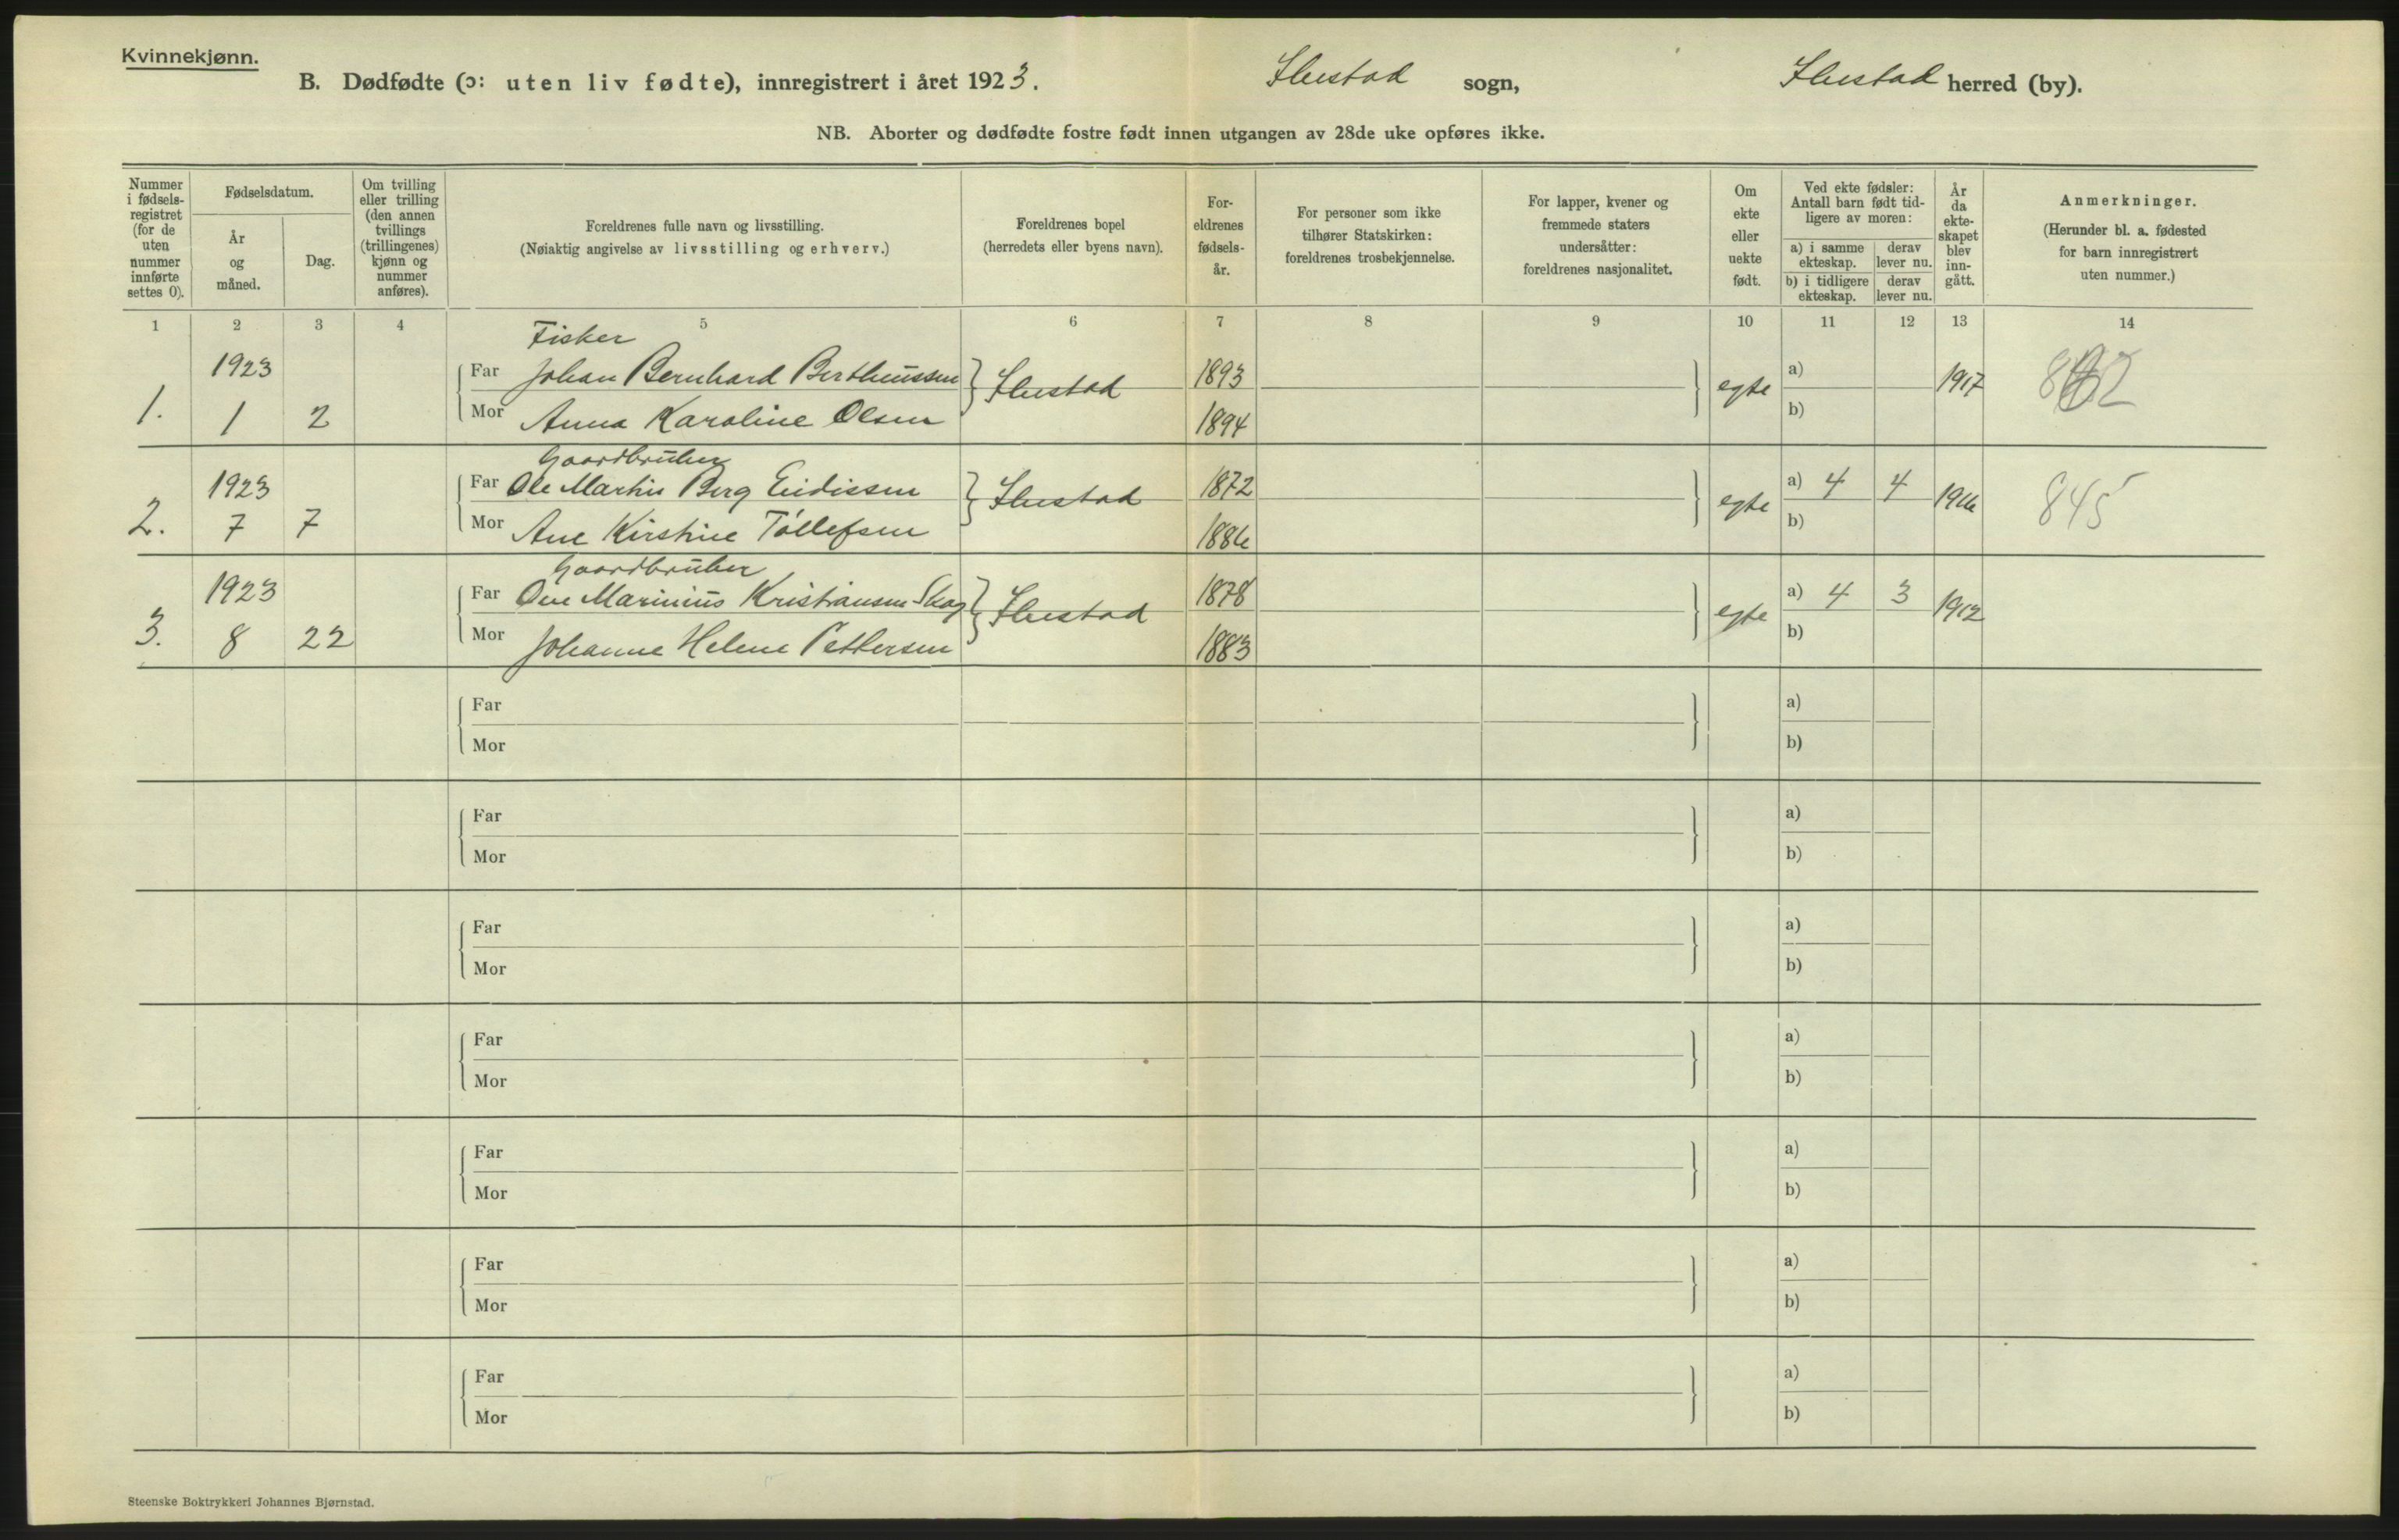 Kvinnekjønn.
B. Dødfødte (ɔ: uten liv fødte), innregistrert i året 1923. Hustad sogn, Hustad herred (by).
NB. Aborter og dødfødte fostre født innen utgangen av 28de uke opføres ikke.
Nummer i fødselsregistret (for de uten nummer innførte settes 0).
Fødselsdatum.
År og måned.
Dag.
Om tvilling eller trilling (den annen tvillings (trillingenes) kjønn og nummer anføres).
Foreldrenes fulle navn og livsstilling.
(Nøiaktig angivelse av livsstilling og erhverv.)
Foreldrenes bopel
(herredets eller byens navn).
Foreldrenes fødselsår.
For personer som ikke tilhører Statskirken: foreldrenes trosbekjennelse.
For lapper, kvener og fremmede staters undersåtter: foreldrenes nasjonalitet.
Om ekte eller uekte født.
Ved ekte fødsler: Antall barn født tidligere av moren:
a) i samme ekteskap.
derav lever nu.
b) i tidligere ekteskap.
derav lever nu.
År da ekteskapet blev inngått.
Anmerkninger.
(Herunder bl. a. fødested for barn innregistrert uten nummer.)
1 2 3 4 5 6 7 8 9 10 11 12 13 14
Fisker
1923 Far Johan Bernhard Berthinussen Hustad 1893 egte a) 1917
1. 1 2 Mor Anna Karoline Olsen 1894 b)
Gaardbruker
1923 Far Ole Martin Berg Eidissen Hustad 1872 egte a) 4 4 1916 845
2. 7 7 Mor Ane Kirstine Tollefsen 1886 b)
Gaardbruker
1923 Far Ove Marinius Kristiansen Skog Hustad 1878 egte a) 4 3 1912
3. 8 22 Mor Johanne Helene Pettersen 1883 b)
Far a)
Mor b)
Far a)
Mor b)
Far a)
Mor b)
Far a)
Mor b)
Far a)
Mor b)
Far a)
Mor b)
Far a)
Mor b)
Steenske Boktrykkeri Johannes Bjørnstad.